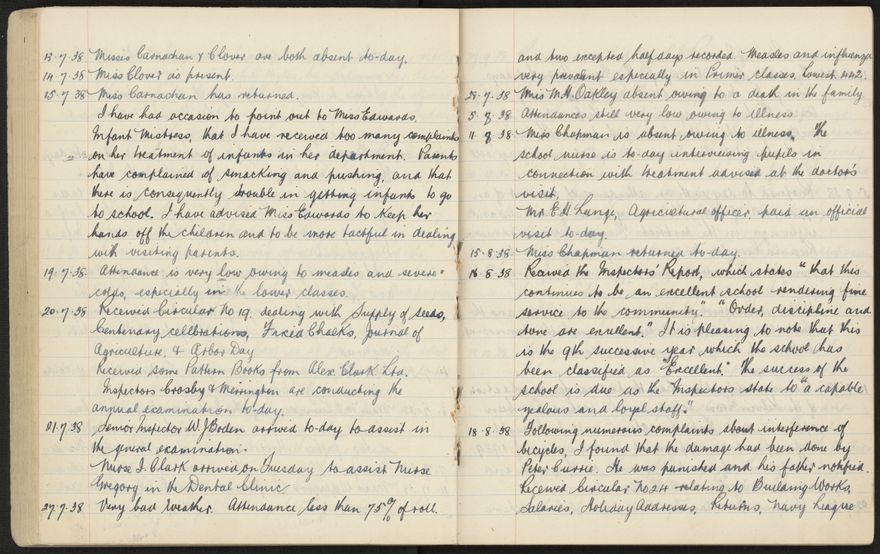 13.7.38 Misses Carnachan & Clover are both absent to-day.
14.7.38 Miss Clover is present.
15.7.38 Miss Carnachan has returned.
I have had occasion to point out to Miss Edwards,
Infant Mistress, that I have received too many complaints
on her treatment of infants in her department. Parents
have complained of smacking and pushing, and that
there is consequently trouble in getting infants to go
to school. I have advised Miss Edwards to keep her
hands off the children and to be more tactful in dealing
with visiting parents.
19.7.38 Attendance is very low owing to measles and severe
colds, especially in the lower classes.
20.7.38 Received Circular No 19 dealing with Supply of Seeds,
Centenary celebrations, Cheeks, Journal of
Agriculture & Arbor Day
Received some Pattern Books from Alex. Clark Ltd.
Inspectors Crosby & Merrington are conducting the
annual examination to-day.
21.7.38 Senior Inspector W J Boden arrived to-day to assist in
the general examination.
Nurse I. Clark arrived on Tuesday to assist Nurse
Gregory in the Dental Clinic
27.7.38 Very bad weather. Attendance less than 75% of roll.
and two excepted half days recorded. Measles and influenza
very prevalent especially in Primer classes. Lowest 442.
28.7.38 Miss M.H. Oakley absent owing to a death in the family.
5.8.38 Attendances still very low owing to illness.
11.8.38 Miss Chapman is absent owing to illness. The
school nurse is to-day interviewing pupils in
connection with treatment advised at the doctor's
visit.
Mr. E.H. Lange, Agricultural officer, paid an official
visit to-day.
15.8.38 Miss Chapman returned to-day.
16.8.38 Received the Inspectors' Report, which states "that this
continues to be an excellent school rendering fine
service to the community." "Order, discipline and
tone are excellent." It is pleasing to note that this
is the 9th successive year which the school has
been classified as "Excellent." The success of the
school is due as the Inspectors state to "a capable
zealous and loyal staff."
18.8.38 Following numerous complaints about interference of
bicycles, I found that the damage had been done by
Peter Currie. He was punished and his father notified.
Received Circular No 24 relating to Building Works,
Salaries, Holiday Addresses, Returns, Navy League